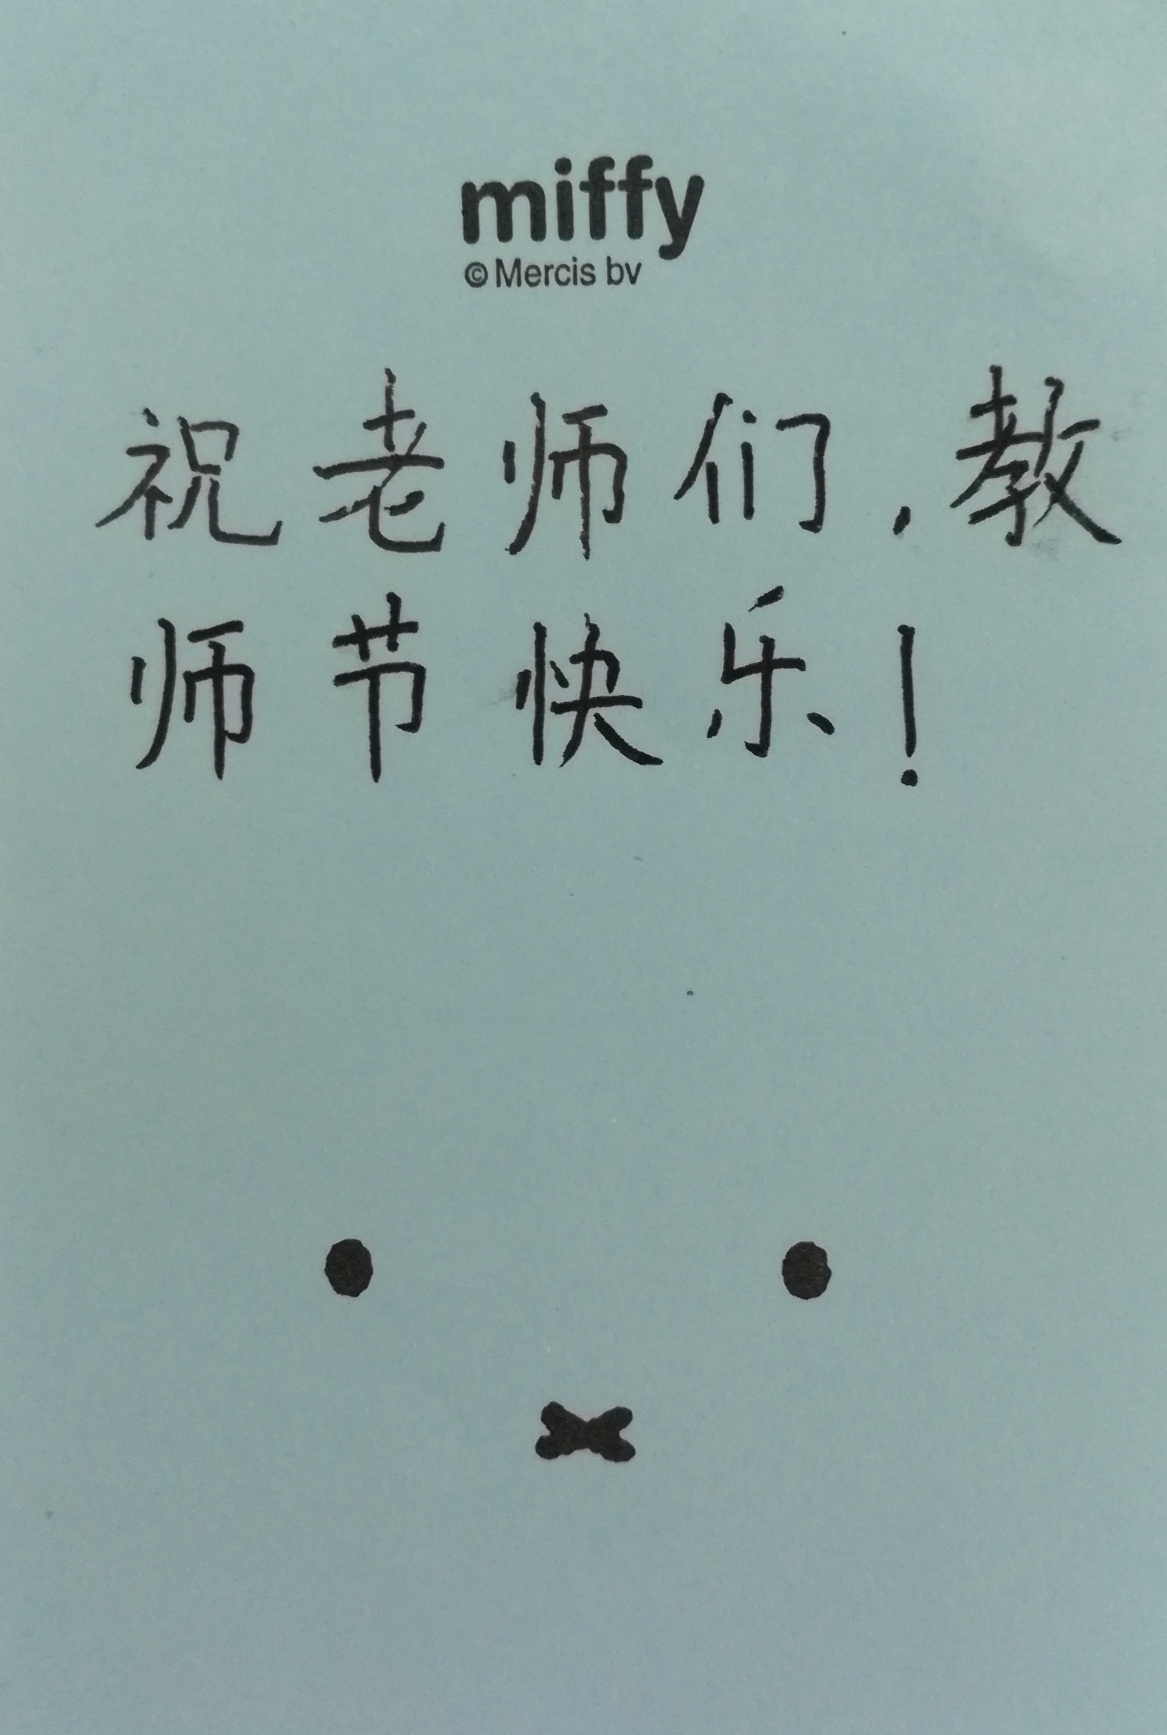 miffy
© Mercis bv
祝老师们，教
师节快乐！